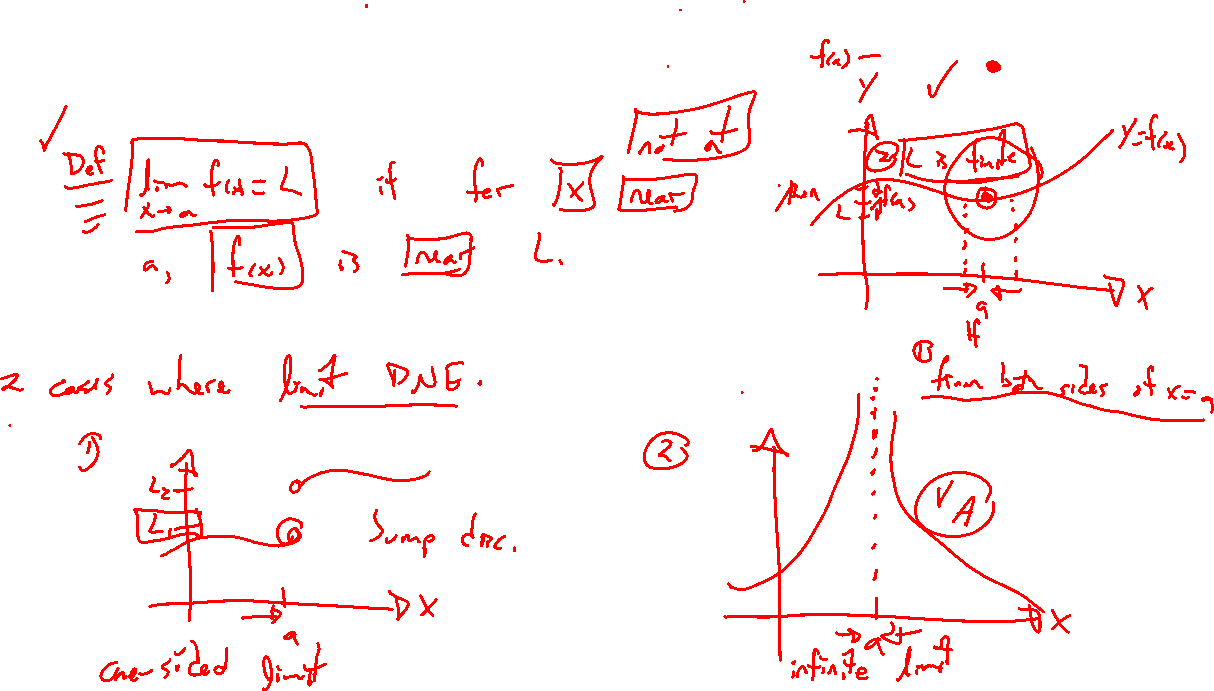 f(a)
y
not at
Def lim f(x) = L if for x near
x→a
a, f(x) is near L.
② L is finite
y=f(x)
then
L
f(a)
x
a
If
① from both sides of x=a
2 cases where limit DNE.
①
L₂
L₁
Jump disc.
x
a
one-sided limit
②
VA
x
a
infinite limit